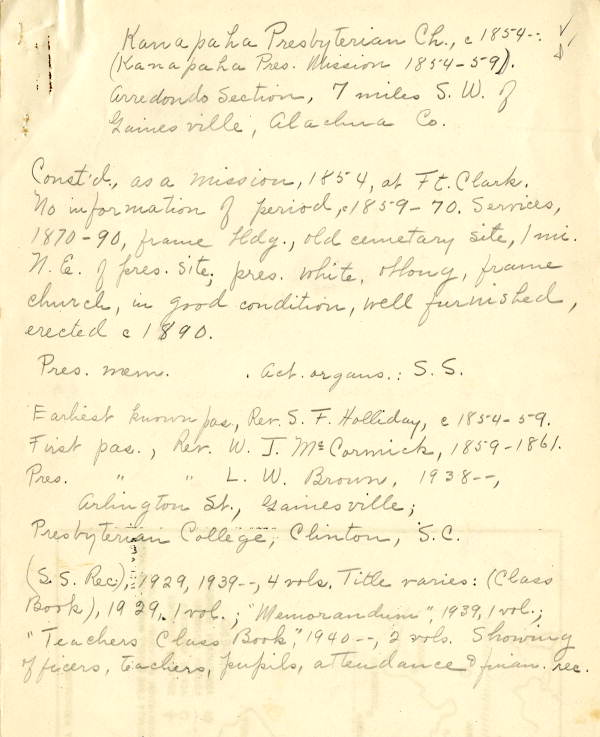 Kanapaha Presbyterian Ch., c 1854--.
(Kanapaha Pres. Mission 1854-59).
Arredondo Section, 7 miles S. W. of
Gainesville, Alachua Co.
Const'd., as a mission, 1854, at Ft. Clark.
No information of period, c1859-70. Services,
1870-90, frame bldg., old cemetary site, 1 mi.
N. E. of pres. site; pres. white, oblong, frame
church, in good condition, well furnished,
erected c 1890.
Pres. mem. . Act. organs.: S. S.
Earliest known pas., Rev. S. F. Holliday, c 1854-59.
First pas., Rev. W. J. McCormick, 1859-1861.
Pres. " " L. W. Brown, 1938--,
Arlington St., Gainesville;
Presbyterian College, Clinton, S.C.
(S. S. Rec), 1929, 1939--, 4 vols. Title varies: (Class
Book), 1929, 1 vol.; "Memorandum", 1939, 1 vol.;
"Teachers Class Book", 1940--, 2 vols. Showing
officers, teachers, pupils, attendance & finan. rec.